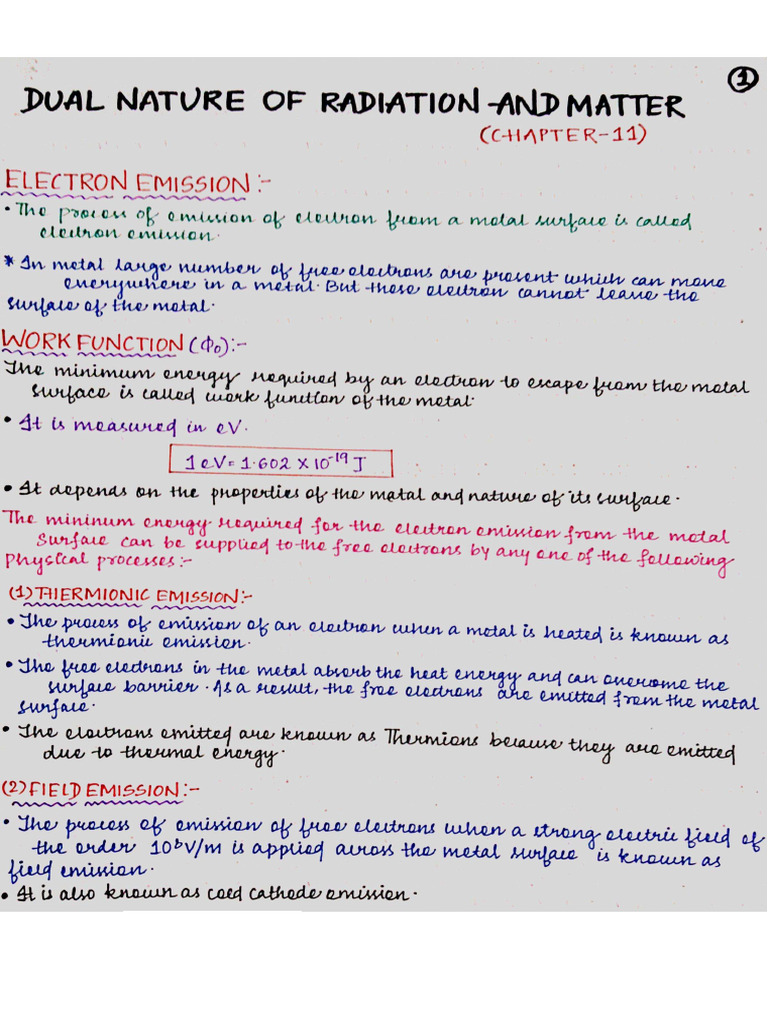 1
DUAL NATURE OF RADIATION AND MATTER
(CHAPTER-11)
ELECTRON EMISSION:-
• The process of emission of electron from a metal surface is called
electron emission.
* In metal large number of free electrons are present which can move
everywhere in a metal. But these electron cannot leave the
surface of the metal.
WORK FUNCTION (Φ₀):-
The minimum energy required by an electron to escape from the metal
surface is called work function of the metal.
• It is measured in eV.
1 eV = 1.602 × 10⁻¹⁹ J
• It depends on the properties of the metal and nature of its surface.
The mininum energy required for the electron emission from the metal
surface can be supplied to the free electrons by any one of the following
physical processes:-
(1) THERMIONIC EMISSION:-
• The process of emission of an electron when a metal is heated is known as
thermionic emission.
• The free electrons in the metal absorb the heat energy and can overcome the
surface barrier. As a result, the free electrons are emitted from the metal
surface.
• The electrons emitted are known as Thermions because they are emitted
due to thermal energy.
(2) FIELD EMISSION:-
• The process of emission of free electrons when a strong electric field of
the order V/m is applied across the metal surface is known as
field emission.
• It is also known as cold cathode emission.